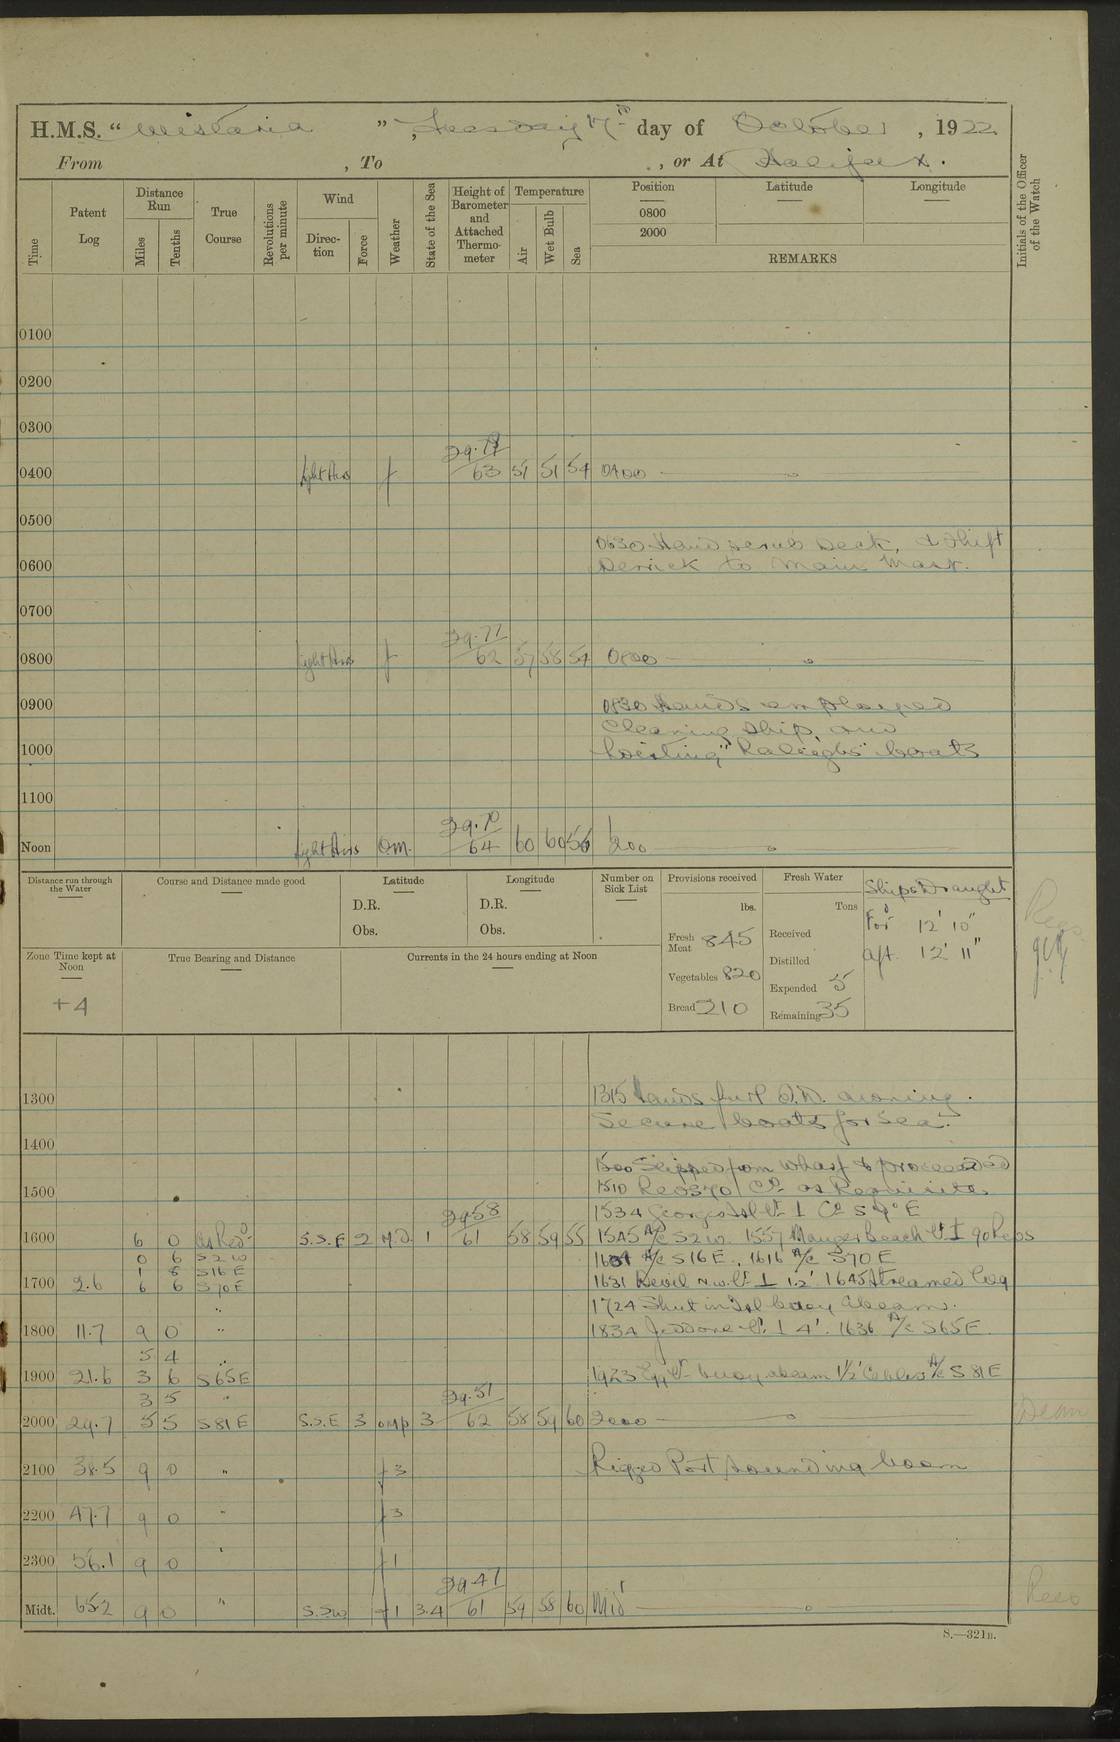 H.M.S. "Wistaria", Tuesday 17th day of October, 1922
From , To , or At Halifax.
Time
Patent Log
Distance Run
Miles
Tenths
True Course
Revolutions per minute
Wind
Direction
Force
Weather
State of the Sea
Height of Barometer and Attached Thermometer
Temperature
Air
Wet Bulb
Sea
Position
0800
2000
Latitude
Longitude
REMARKS
Initials of the Officer of the Watch
0100
0200
0300
0400 Light Airs f 63 51 54 0400
0500
0630 Hands scrub Deck, & shift
0600 Derrick to Main Mast.
0700
29.77
0800 Light Airs f 62 57 58 54 0800
0900 0830 Hands employed
Cleaning Ship, and
1000 hoisting "Raleighs" boats
1100
29.70
Noon Light Airs om. 64 60 60 56 1200
Distance run through the Water
Course and Distance made good
Latitude
D.R.
Obs.
Longitude
D.R.
Obs.
Number on Sick List
Provisions received
lbs.
Fresh Meat 845
Vegetables 820
Bread 210
Fresh Water
Tons
Received
Distilled
Expended 5
Remaining 35
Ships Draught
For'd 12' 10"
Aft. 12' 11"
Zone Time kept at Noon
+4
True Bearing and Distance
Currents in the 24 hours ending at Noon
1300 1315 Hands furl Q.D. awning.
Secure boats for Sea.
1400
1500 Slipped from wharf & proceeded
1500 1510 Revs 370 Co as Requisite.
29.58 1534 Georges Isl Lt ⊥ Co S 9° E
1600 6 0 as Reqd S.S.E 2 M.D. 1 61 58 59 55 1545 A/c S2W. 1557 Mauger Beach Lt ⊥ 90 Revs
0 6 S2W A/c S16E, 1616 A/c S70E
1 8 S16E
1700 2.6 6 6 S70E 1631 Lt ⊥ 1.2' 1645 Streamed Log
" 1724 Shut in Isl buoy abeam.
1800 11.7 9 0 " 1834 Jeddore Lt. ⊥ 4'. 1636 A/c S65E
5 4 "
1900 21.6 3 6 S65E 1923 Egg Lt. buoy abeam 1½' Cables A/c S 81 E
3 5 " 29.51
2000 29.7 5 5 S81E S.S.E 3 omp 3 62 58 59 60 2000
2100 38.5 9 0 " f 3 Rigged Port sounding boom
2200 47.7 9 0 " f 3
2300 56.1 9 0 " f 1
29.47
Midt. 65.2 9 0 " S.S.W f 1 3.4 61 59 58 60 Midt
S.—321B.